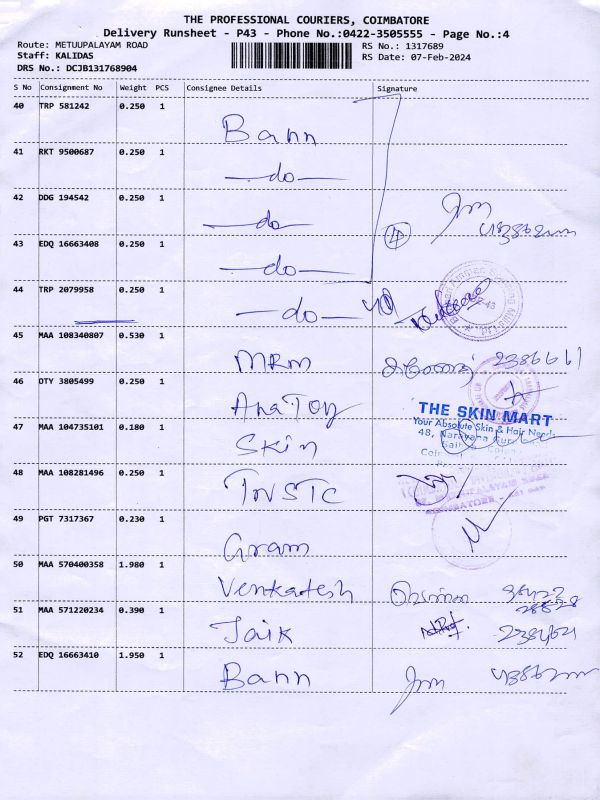 THE PROFESSIONAL COURIERS, COIMBATORE
Delivery Runsheet - P43 - Phone No.:0422-3505555 - Page No.:4
Route: METUUPALAYAM ROAD RS No.: 1317689
Staff: KALIDAS RS Date: 07-Feb-2024
DRS No.: DCJB131768904
S No Consignment No Weight PCS Consignee Details Signature
40 TRP 581242 0.250 1 Bann
41 RKT 9500687 0.250 1 —do—
42 DDG 194542 0.250 1 —do—
43 EDQ 16663408 0.250 1 —do— 4
44 TRP 2079958 0.250 1 —do—
45 MAA 108340807 0.530 1 MRM 2386661
46 OTY 3805499 0.250 1
THE SKIN MART
Your Absolute Skin & Hair Needs
48, Narayana Guru
47 MAA 104735101 0.180 1 Skin
48 MAA 108281496 0.250 1 TNSTC
49 PGT 7317367 0.230 1 Gram
50 MAA 570400358 1.980 1 Venkatesh
51 MAA 571220234 0.390 1 Jaik
52 EDQ 16663410 1.950 1 Bann